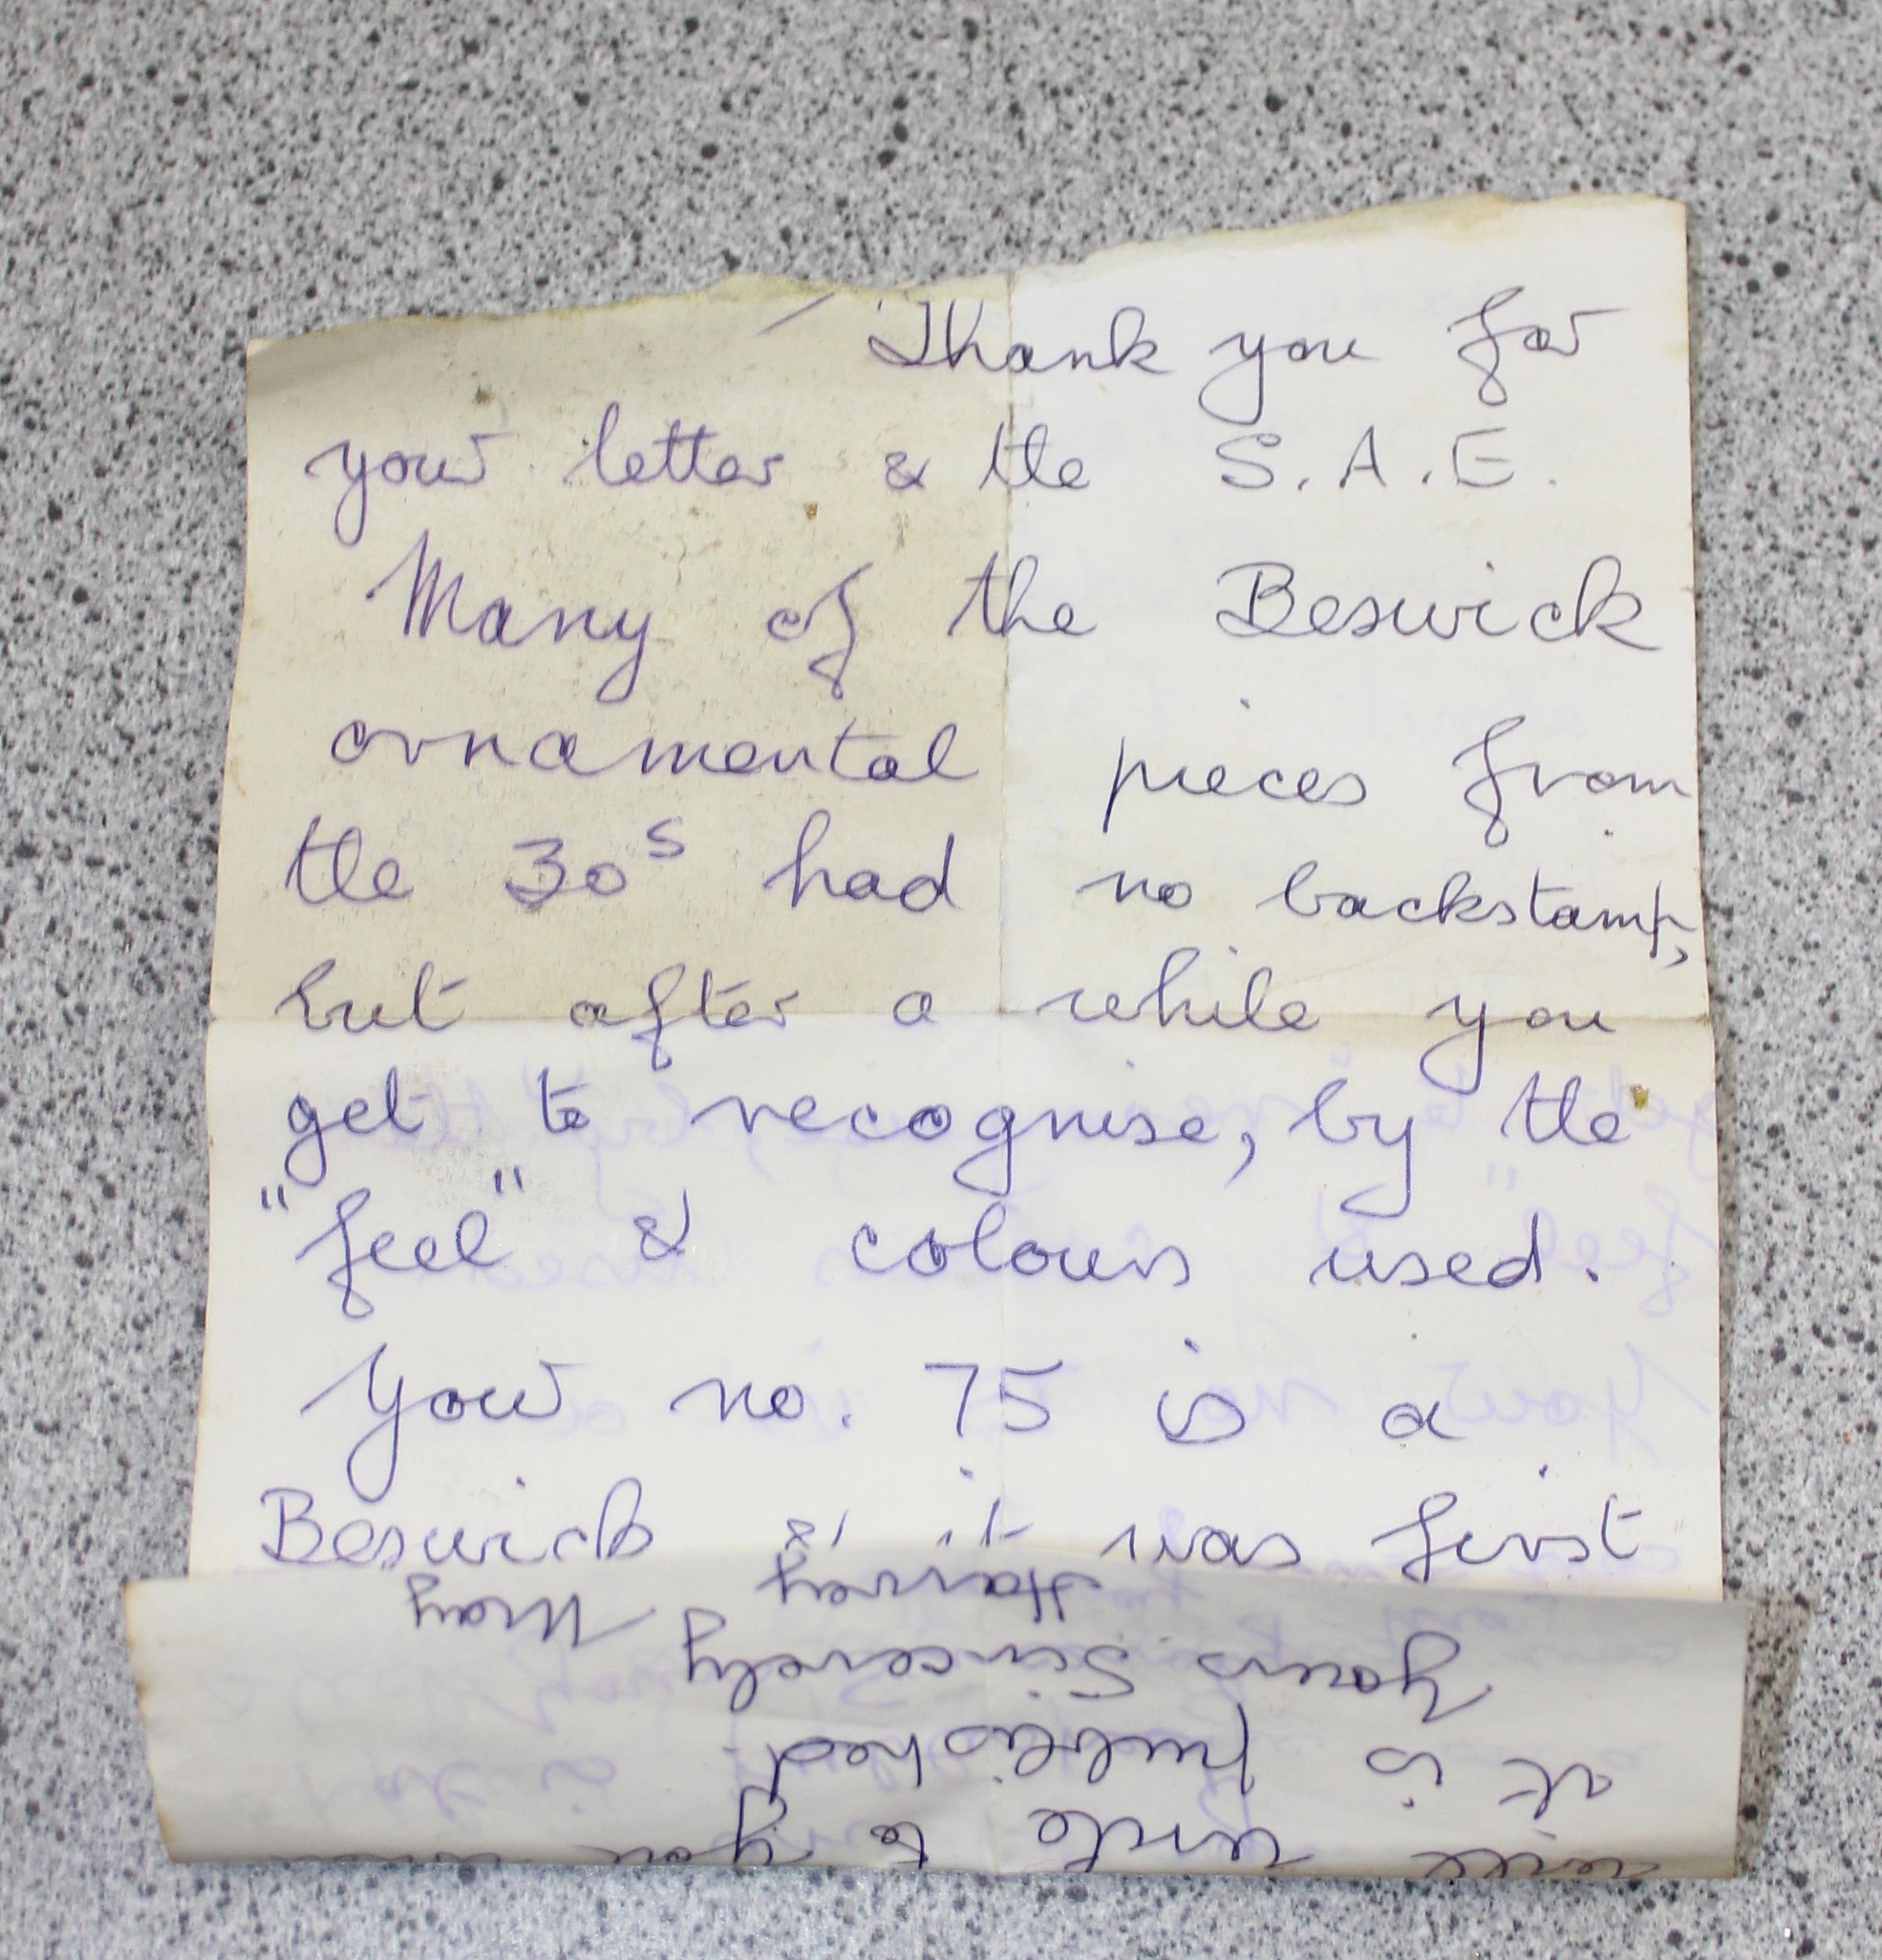 Thank you for
your letter & the S.A.E.
Many of the Beswick
ornamental pieces from
the 30s had no backstamp,
but after a while you
get to recognise, by the
"feel" & colours used.
Your no. 75 is a
Beswick & it was first
will write to you when
it is published
Yours Sincerely
Harvey May